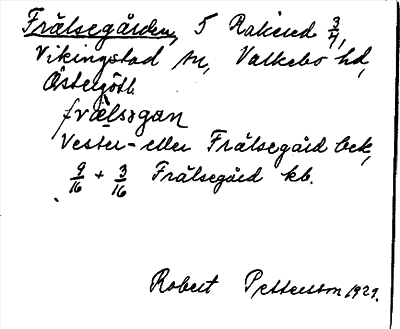 Frälsegården, 5 Rakered 3/4,
Vikingstad sn, Valkebo hd,
Östergötl.
frälsəgan
Vester- eller Frälsegård bek,
9/16 + 3/16 Frälsegård kb.
Robert Petterson 1929.